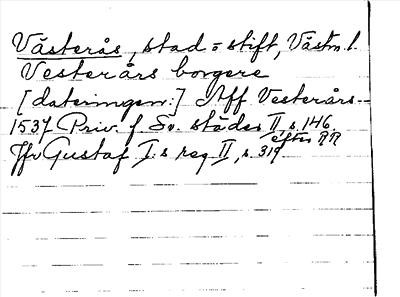 Västerås, stad o stift, Västm. l.
Vesterårs borgere
[dateringen:] Aff Vesterårs -
1537 Priv. f Sv. städer II, s. 146
efter RR
Jfr Gustaf I:s reg II, s. 319